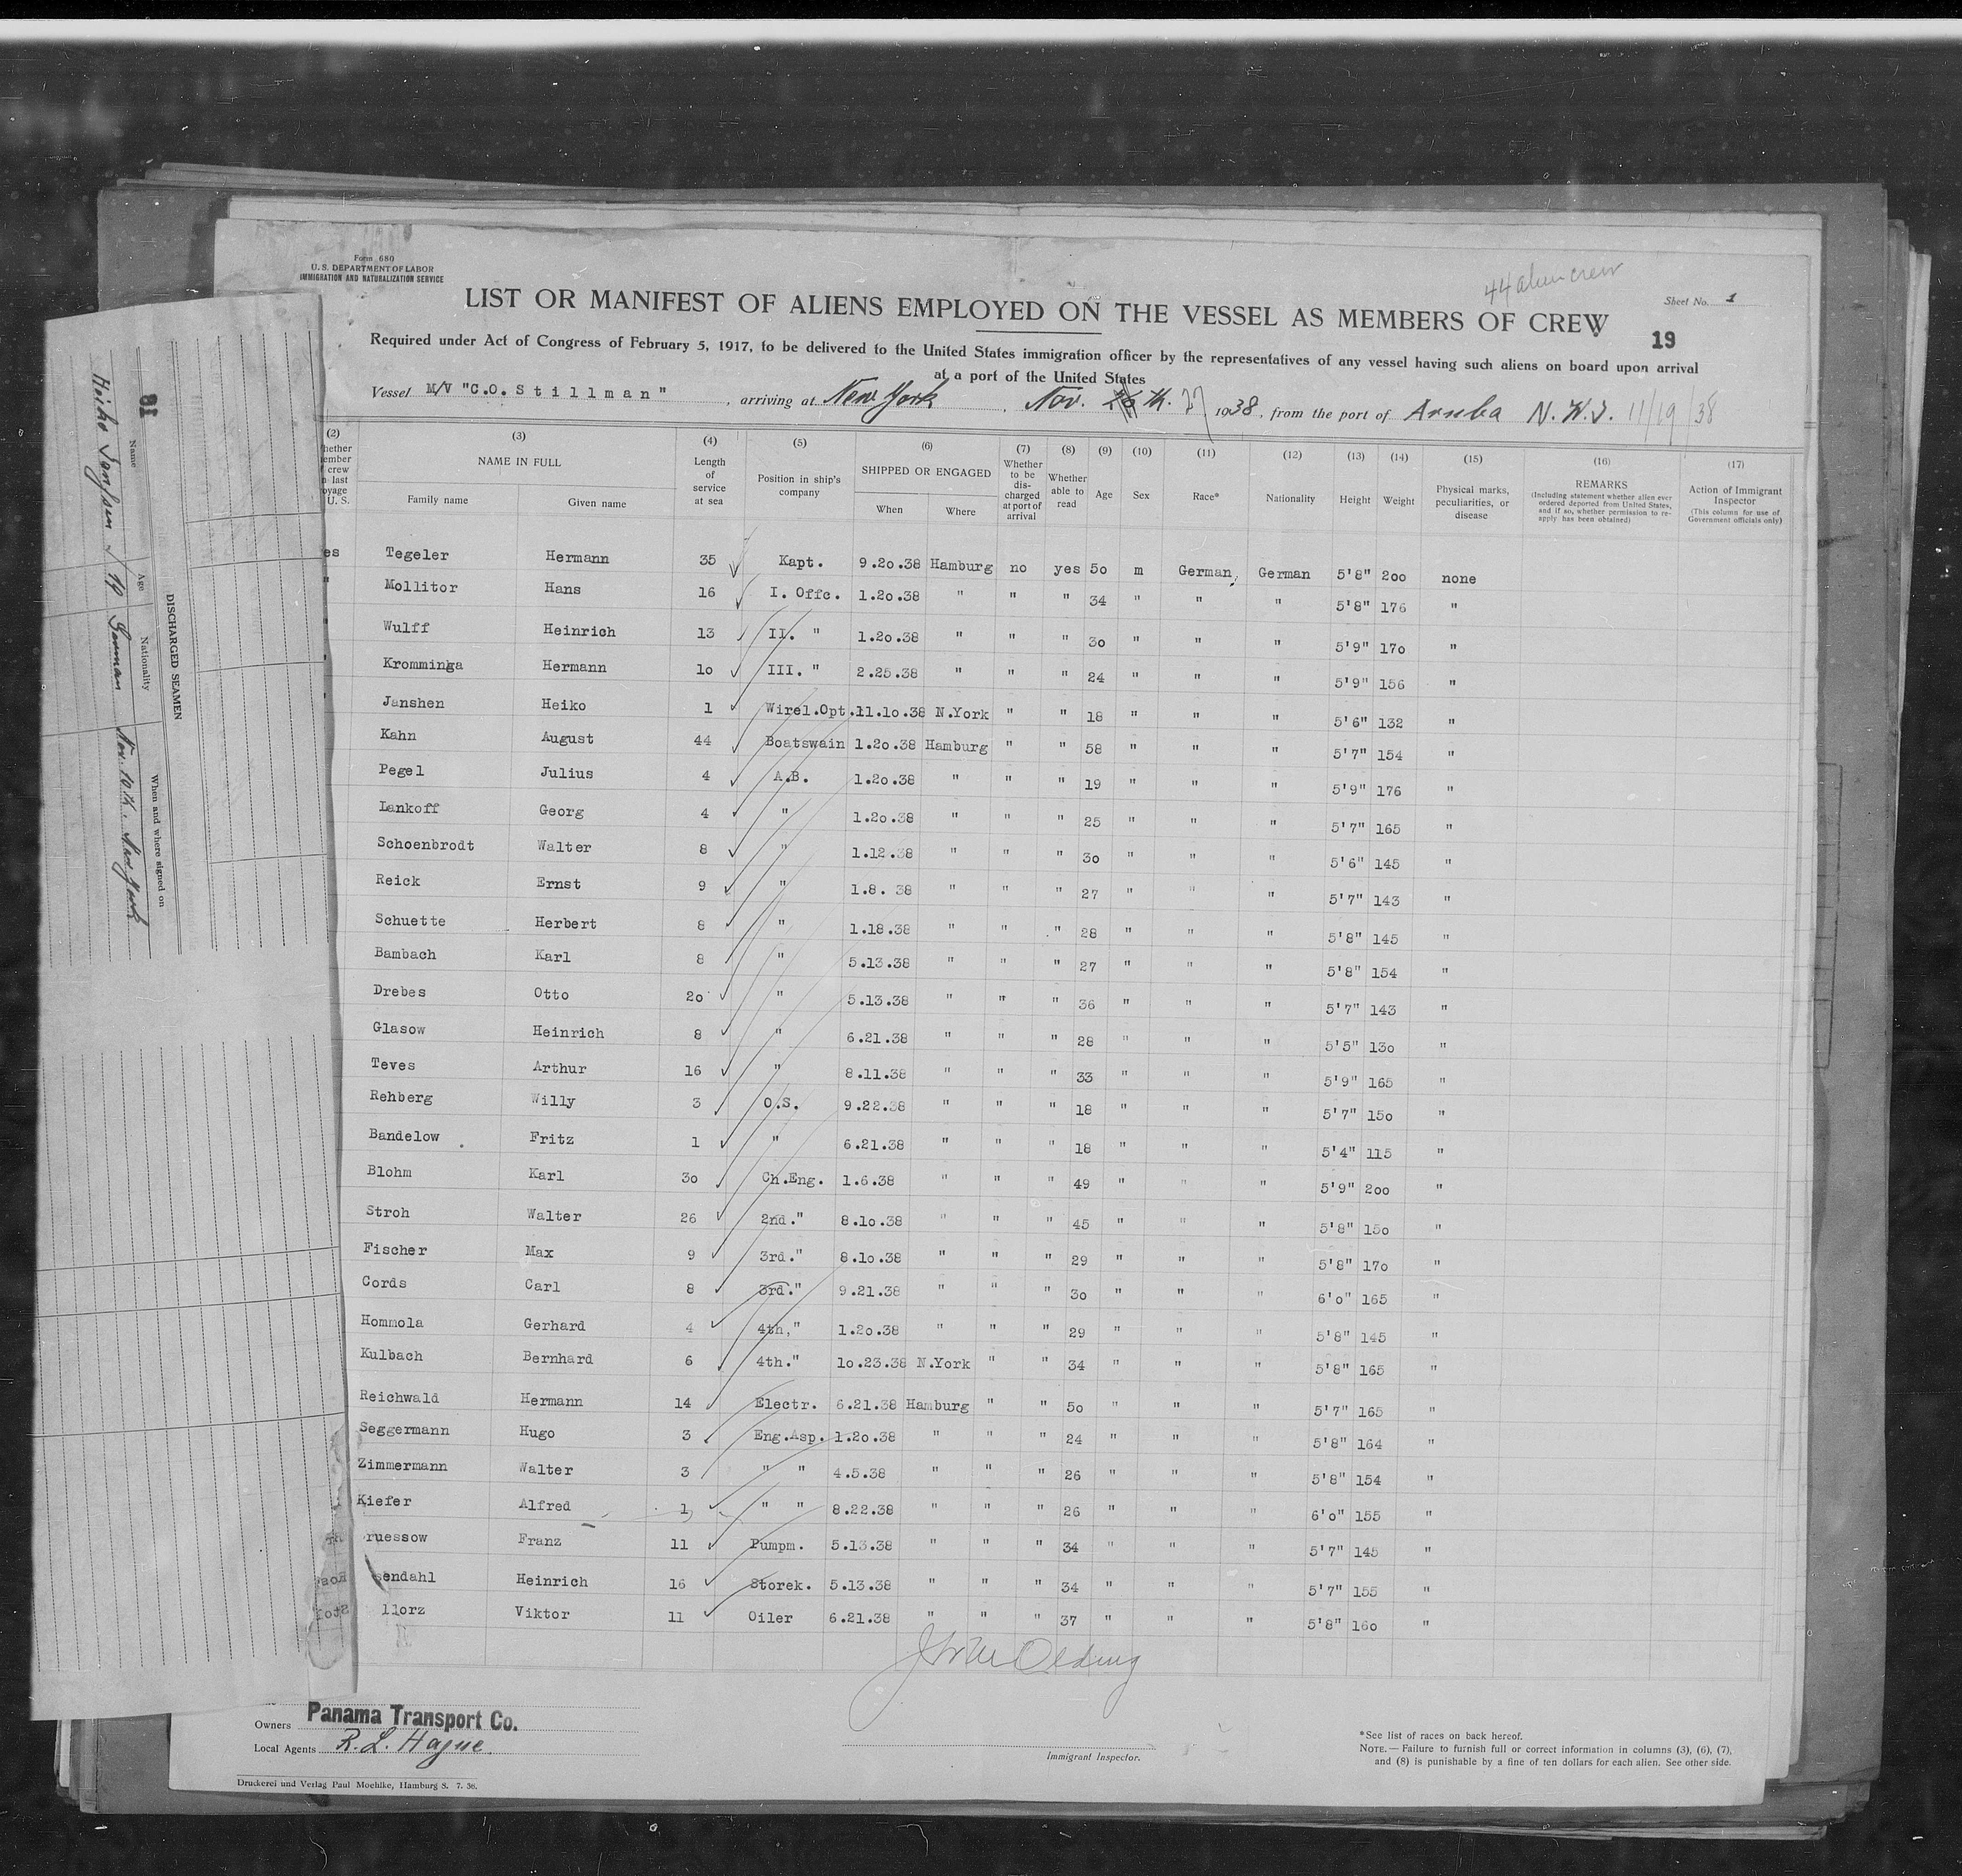 Form 680
U. S. DEPARTMENT OF LABOR
IMMIGRATION AND NATURALIZATION SERVICE
44 alien crew
Sheet No. 1
LIST OR MANIFEST OF ALIENS EMPLOYED ON THE VESSEL AS MEMBERS OF CREW
19
Required under Act of Congress of February 5, 1917, to be delivered to the United States immigration officer by the representatives of any vessel having such aliens on board upon arrival
at a port of the United States
Vessel M/V "C.O. Stillman", arriving at New York, Nov. 26 th. 27 1938, from the port of Aruba N. W. I. 11/19/38
(2) (3) (4) (5) (6) (7) (8) (9) (10) (11) (12) (13) (14) (15) (16) (17)
NAME IN FULL
Family name Given name
Length of service at sea
Position in ship's company
SHIPPED OR ENGAGED
When Where
Whether to be discharged at port of arrival
Whether able to read
Age
Sex
Race*
Nationality
Height
Weight
Physical marks, peculiarities, or disease
REMARKS
(Including statement whether alien ever ordered deported from United States, and if so, whether permission to re-apply has been obtained)
Action of Immigrant Inspector
(This column for use of Government officials only)
es Tegeler Hermann 35 Kapt. 9.2o.38 Hamburg no yes 5o m German German 5'8" 2oo none
" Mollitor Hans 16 I. Offc. 1.2o.38 " " " 34 " " " 5'8" 176 "
" Wulff Heinrich 13 II. " 1.2o.38 " " " 3o " " " 5'9" 17o "
" Kromminga Hermann 1o III. " 2.25.38 " " " 24 " " " 5'9" 156 "
" Janshen Heiko 1 Wirel.Opt. 11.1o.38 N.York " " 18 " " " 5'6" 132 "
Kahn August 44 Boatswain 1.2o.38 Hamburg " " 58 " " " 5'7" 154 "
Pegel Julius 4 A.B. 1.2o.38 " " " 19 " " " 5'9" 176 "
Lankoff Georg 4 " 1.2o.38 " " " 25 " " " 5'7" 165 "
Schoenbrodt Walter 8 " 1.12.38 " " " 3o " " " 5'6" 145 "
Reick Ernst 9 " 1.8. 38 " " " 27 " " " 5'7" 143 "
Schuette Herbert 8 " 1.18.38 " " " 28 " " " 5'8" 145 "
Bambach Karl 8 " 5.13.38 " " " 27 " " " 5'8" 154 "
Drebes Otto 2o " 5.13.38 " " " 36 " " " 5'7" 143 "
Glasow Heinrich 8 " 6.21.38 " " " 28 " " " 5'5" 13o "
Teves Arthur 16 " 8.11.38 " " " 33 " " " 5'9" 165 "
Rehberg Willy 3 O.S. 9.22.38 " " " 18 " " " 5'7" 15o "
Bandelow Fritz 1 " 6.21.38 " " " 18 " " " 5'4" 115 "
Blohm Karl 3o Ch.Eng. 1.6.38 " " " 49 " " " 5'9" 2oo "
Stroh Walter 26 2nd." 8.1o.38 " " " 45 " " " 5'8" 15o "
Fischer Max 9 3rd." 8.1o.38 " " " 29 " " " 5'8" 17o "
Cords Carl 8 3rd." 9.21.38 " " " 3o " " " 6'o" 165 "
Hommola Gerhard 4 4th," 1.2o.38 " " " 29 " " " 5'8" 145 "
Kulbach Bernhard 6 4th." 1o.23.38 N.York " " 34 " " " 5'8" 165 "
Reichwald Hermann 14 Electr. 6.21.38 Hamburg " " 5o " " " 5'7" 165 "
Seggermann Hugo 3 Eng.Asp. 1.2o.38 " " " 24 " " " 5'8" 164 "
Zimmermann Walter 3 " " 4.5.38 " " " 26 " " " 5'8" 154 "
Kiefer Alfred 1 " " 8.22.38 " " " 26 " " " 6'o" 155 "
ruessow Franz 11 Pumpm. 5.13.38 " " " 34 " " " 5'7" 145 "
sendahl Heinrich 16 Storek. 5.13.38 " " " 34 " " " 5'7" 155 "
llorz Viktor 11 Oiler 6.21.38 " " " 37 " " " 5'8" 16o "
Owners Panama Transport Co.
Local Agents R. L. Hague
Immigrant Inspector.
*See list of races on back hereof.
NOTE.—Failure to furnish full or correct information in columns (3), (6), (7),
and (8) is punishable by a fine of ten dollars for each alien. See other side.
Druckerei und Verlag Paul Moehlke, Hamburg 8. 7. 36.
DISCHARGED SEAMEN
Name Age Nationality When and where signed on
Heiko Janssen 19 German Nov. 10th. New York
18